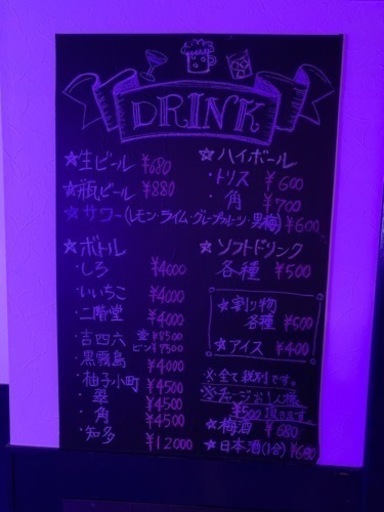 DRINK
★生ビール ¥680
★瓶ビール ¥880
★サワー(レモン・ライム・グレープフルーツ・男梅) ¥600
★ボトル
・しろ ¥4000
・いいちこ ¥4000
・二階堂 ¥4000
・吉四六 壺¥8500
ビン¥7500
・黒霧島 ¥4000
・柚子小町 ¥4500
・翠 ¥4500
・角 ¥4500
・知多 ¥12000
☆ハイボール
・トリス ¥600
・角 ¥700
☆ソフトドリンク
各種 ¥500
★割り物
各種 ¥500
★アイス ¥400
※全て税別です。
※チャージお1人様
¥500頂きます。
★梅酒 ¥680
★日本酒(1合) ¥680